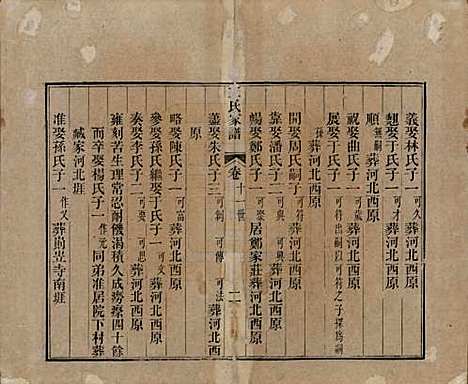 義娶林氏子一可久葬河北西原
魁娶于氏子一可才葬河北西原
順無嗣葬河北西原
觀娶曲氏子一可符葬河北西原
展娶于氏子一可符出嗣以可符之子探為嗣
孫葬河北西原
開娶周氏嗣子一可符葬河北西原
靠娶潘氏子二可興可葬河北西原
暢娶鄭氏子一可崇居鄭家莊葬河北西原
王氏家譜 卷十一世 二
藎娶朱氏子三可制可傳可法葬河北西
原
略娶陳氏子一可富葬河北西原
參娶孫氏繼娶于氏子一可文葬河北西原
奏娶李氏子二可要可思葬河北西原
雍刻苦生理常忍耐饑渴積久成癆瘵四十餘
而卒娶楊氏子一作元同弟准居院下村葬
臧家河北莊
准娶孫氏子一作又葬尚莹寺南莊